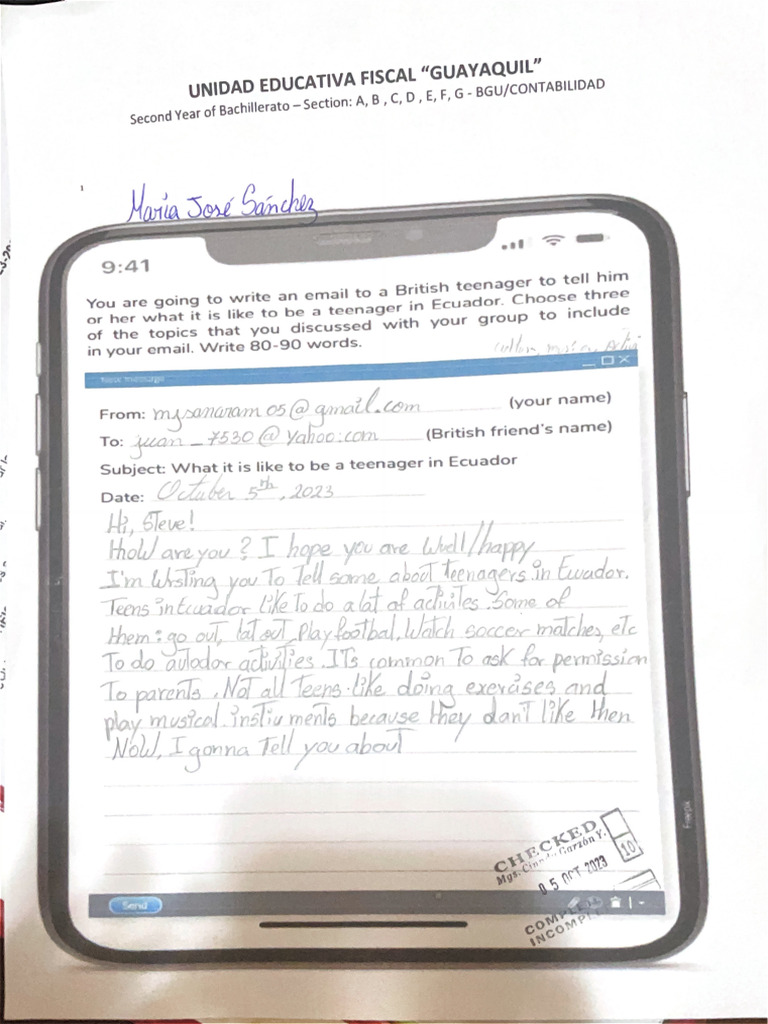 UNIDAD EDUCATIVA FISCAL “GUAYAQUIL”
Second Year of Bachillerato – Section: A, B , C, D , E, F, G - BGU/CONTABILIDAD
1
María José Sánchez
9:41
You are going to write an email to a British teenager to tell him
or her what it is like to be a teenager in Ecuador. Choose three
of the topics that you discussed with your group to include
in your email. Write 80-90 words.
New message
From: mjsanaram05@gmail.com (your name)
To: juan_7530@yahoo.com (British friend's name)
Subject: What it is like to be a teenager in Ecuador
Date: October 5th, 2023
Hi, Steve!
How are you? I hope you are well/happy
I'm writing you to tell some about teenagers in Ecuador.
Teens in Ecuador like to do a lot of activites. Some of
them: go out, eat out, play footbal, watch soccer matches, etc
To do autdor activities. It's common to ask for permission
to parents. Not all teens like doing exercises and
play musical instruments because they don't like then
Now, I gonna tell you about
Send
Freepik
CHECKED
Mgs. Garzón Y.
10
05 OCT 2023